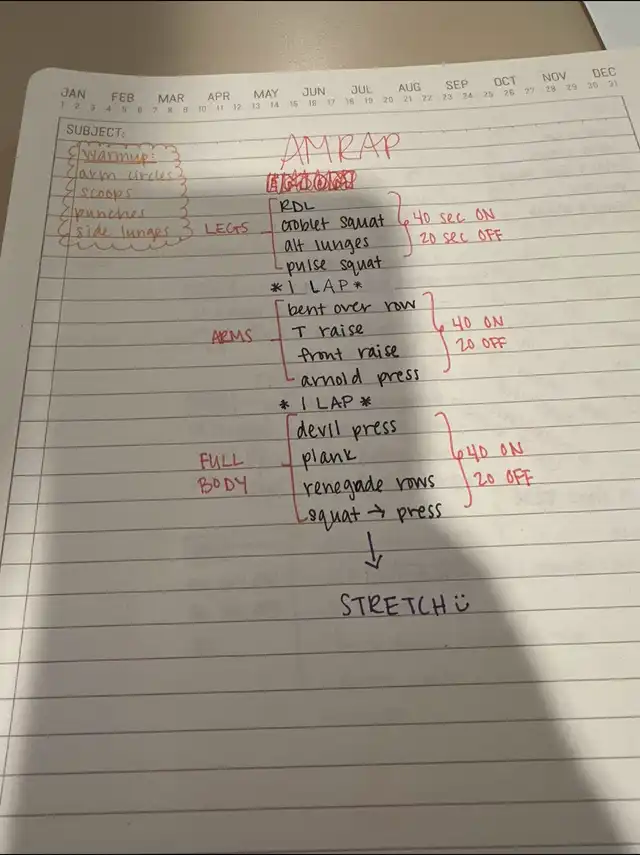 JAN FEB MAR APR MAY JUN JUL AUG SEP OCT NOV DEC
1 2 3 4 5 6 7 8 9 10 11 12 13 14 15 16 17 18 19 20 21 22 23 24 25 26 27 28 29 30 31
SUBJECT:
warmup:
arm circles
scoops
punches
side lunges
AMRAP
LEGS
RDL
goblet squat
alt lunges
pulse squat
40 sec ON
20 sec OFF
* 1 LAP *
ARMS
bent over row
T raise
front raise
arnold press
40 ON
20 OFF
* 1 LAP *
FULL
BODY
devil press
plank
renegade rows
squat → press
40 ON
20 OFF
STRETCH